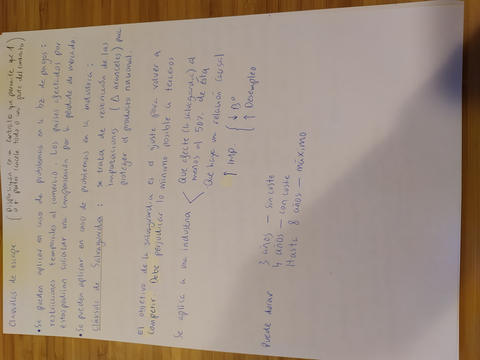 Cláusulas de escape { Disposición en un contrato que permite que 1
o + partes cancele todo o una parte del contrato)
• Se pueden aplicar en caso de problemas en la bz de pagos:
restricciones temporales al comercio. Los países afectados por
estas podrían solicitar una compensación por la pérdida de mercado
• Se pueden aplicar en caso de problemas en la industria:
Cláusula de Salvaguardias: se trata de restricción de las
importaciones (Δ aranceles) para
proteger el producto nacional.
El objetivo de la salvaguardia es el ajuste para volver a
competir. Debe perjudicar lo mínimo posible a terceros
Se aplica a una industria
Que afecte (la salvaguardia) al
menos al 50% de ésta
Que haya una relación causal
↑ IMP. { ↓ Bº
↑ Desempleo
Puede durar
3 años — sin coste
4 años — con coste
Hasta 8 años — máximo